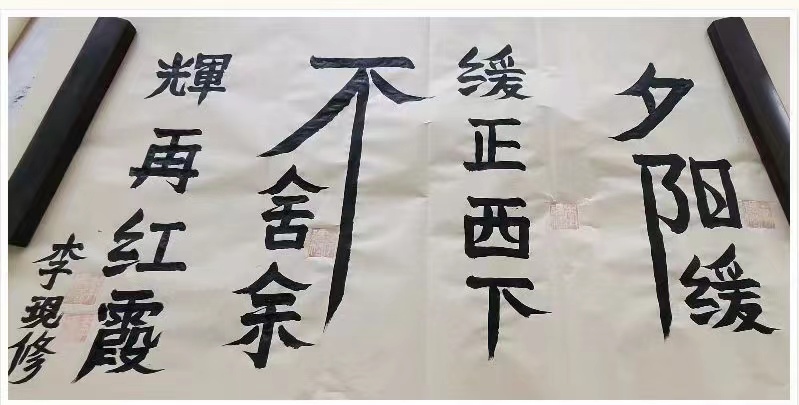 夕阳缓
缓正西下
不舍余
輝再红霞
李現修